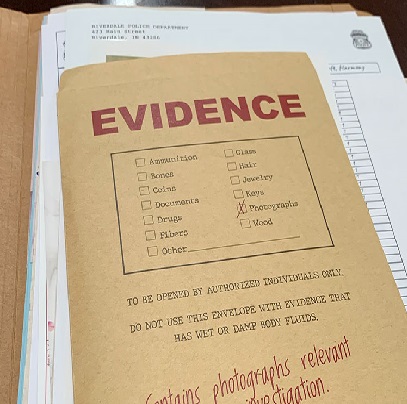 RIVERDALE POLICE DEPARTMENT
423 Main Street
Riverdale,
EVIDENCE
Ammunition
Bones
Coins
Documents
Drugs
Fibers
Other
Glass
Hair
Jewelry
Keys
Photographs
Wood
TO BE OPENED BY AUTHORIZED INDIVIDUALS ONLY
DO NOT USE THIS ENVELOPE WITH EVIDENCE THAT
HAS WET OR DAMP BODY FLUIDS.
Contains photographs relevant
investigation.
Harmony